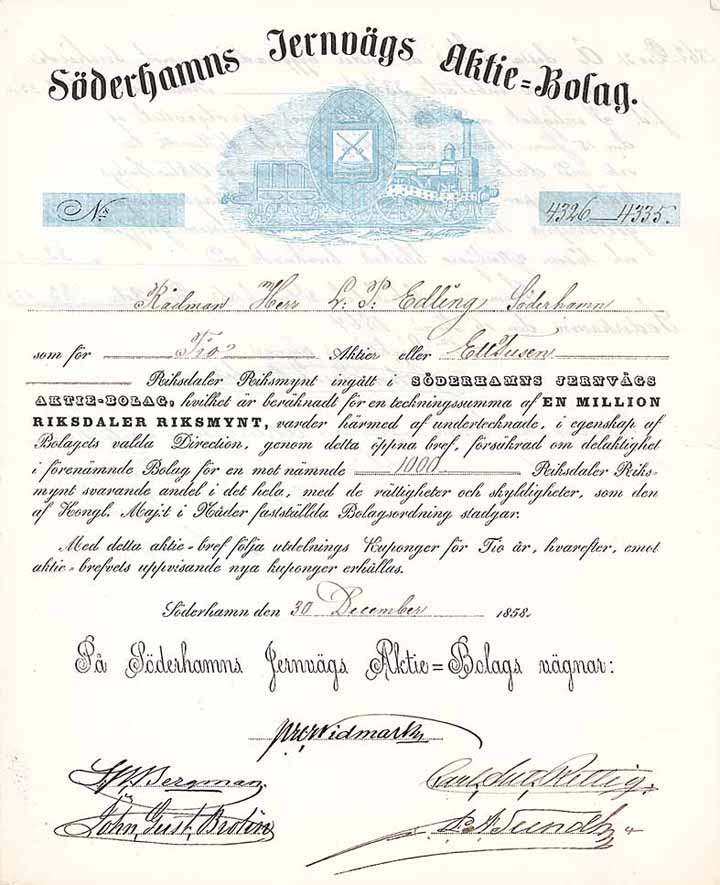 Söderhamns Jernvägs Aktie=Bolag.
No
4326–4335.
Rådman Herr L. P. Edling, Söderhamn
som för Tio Aktier eller Ett Tusen
Riksdaler Riksmynt ingått i SÖDERHAMNS JERNVÄGS
AKTIE-BOLAG, hvilket är beräknadt för en teckningssumma af EN MILLION
RIKSDALER RIKSMYNT, varder härmed af undertecknade, i egenskap af
Bolagets valda Direction, genom detta öppna bref, försäkrad om delaktighet
i förenämnde Bolag för en mot nämnde 1000 Riksdaler Riks-
mynt svarande andel i det hela, med de rättigheter och skyldigheter, som den
af Kongl. Maj:t i Nåder fastställda Bolagsordning stadgar.
Med detta aktie-bref följa utdelnings Kuponger för Tio år, hvarefter, emot
aktie-brefvets uppvisande nya kuponger erhållas.
Söderhamn den 30 December 1858.
På Söderhamns Jernvägs Aktie=Bolags vägnar:
Widmark
Bergman.
Carl Ant. Rettig.
John. Gust. Brolin